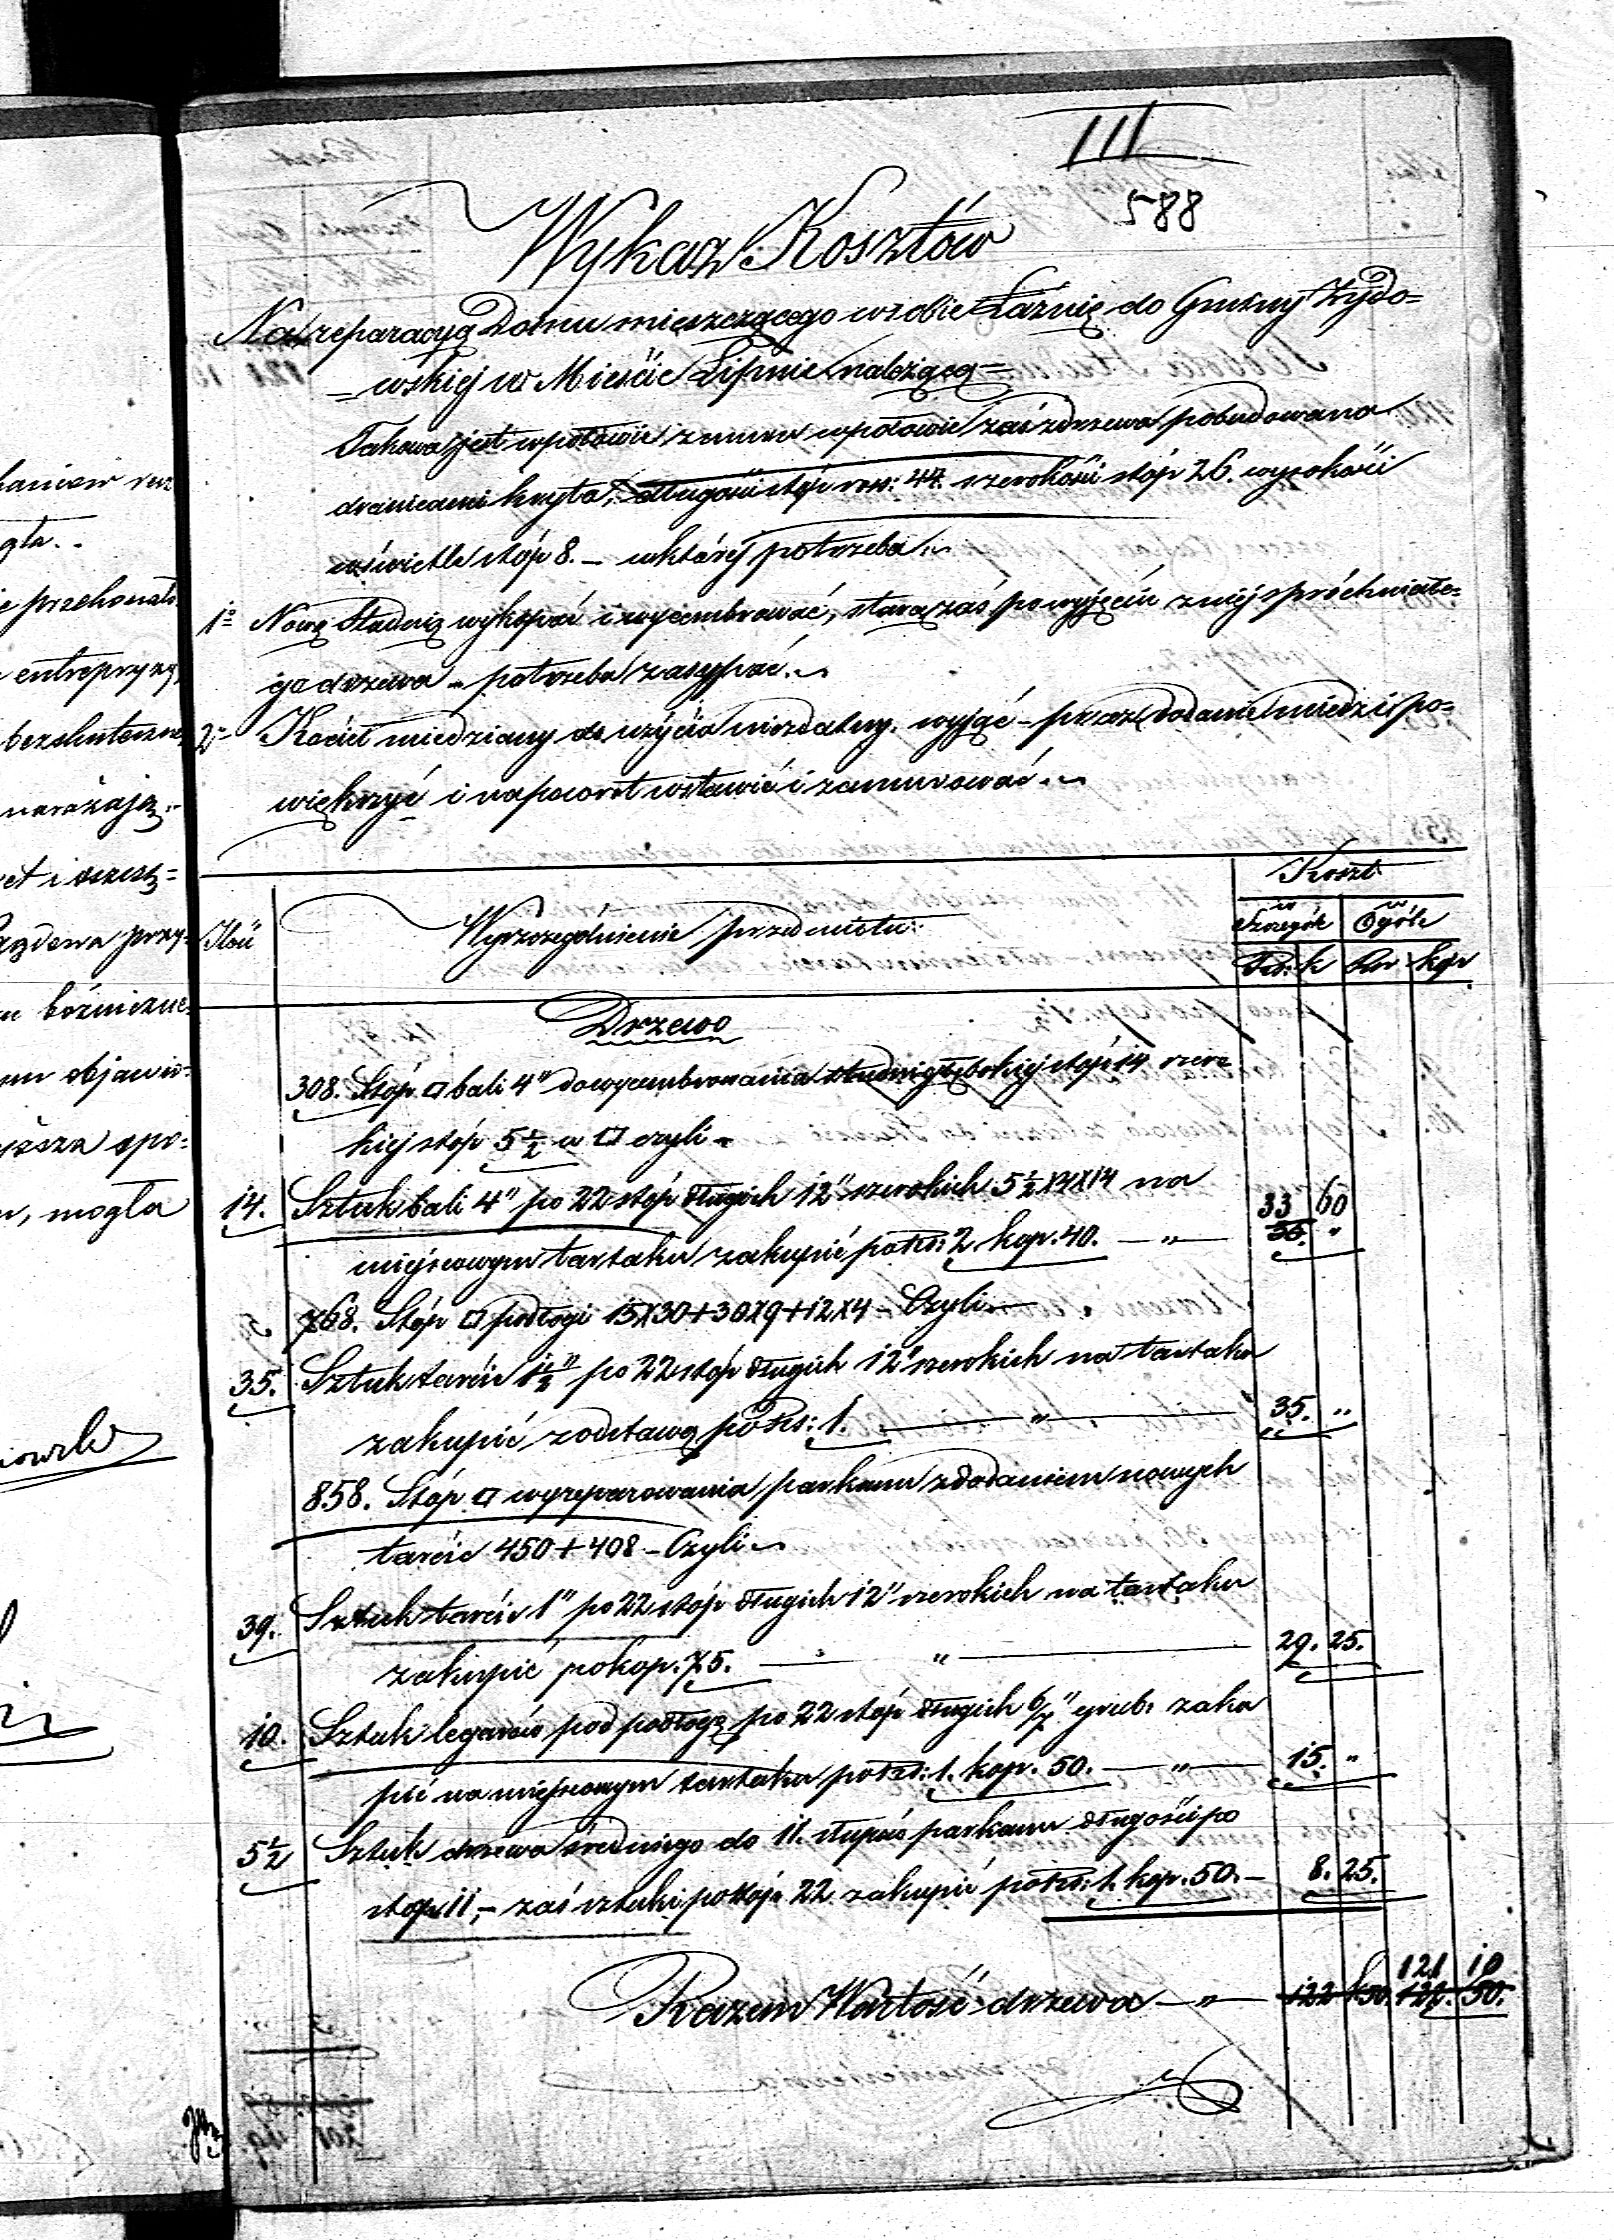 III
588
Wykaz Kosztów
Na reparacyą Domu mieszczącego w sobie Łaźnię do Gminy Żydo=
=wskiej w Mieście Lipnie należącą=
Takowa jest wpołowie zmuru wpołowie zaś zdrzewa pobudowana
dranicami kryta, długości stóp ros: 44. szerokości stóp 26. wysokości
wświetle stóp 8. – wktórej potrzeba
1o Nową Studnię wykopać i wycembrować, starą zaś po wyjęciu zniej spróchniałe=
go drzewa – potrzeba zasypać.
2o Kocieł miedziany do użycia niezdatny. wyjąć – przez dodanie miedzi po=
większyć i napowrot wstawić i zamurować.
Ilość
Wyszczególnienie przedmiotu
Koszt
w Szczególe
w Ogóle
Rs: k Rsr kop
Drzewo
308. Stóp □ bali 4" do wycembrowania studni głębokiej stóp 14 szero
kiej stóp 5 1/2 w □ czyli
14. Sztuk bali 4" po 22 stóp długich 12" szerokich 5 1/2 X4X14 na
miejscowym tartaku zakupić po Rs: 2 kop. 40. — " — 33 60
36. "
768. Stóp □ podłogi 15X30+30X9+12X4 – Czyli
35. Sztuk tarcic 1 1/2" po 22 stóp długich 12" szerokich na tartaku
zakupić zodstawą po Rs: 1. — " — 35. "
858. Stóp □ wyreparowania parkanu zdodaniem nowych
tarcic 450+408 – Czyli
39. Sztuk tarcic 1" po 22 stóp długich 12" szerokich na tartaku
zakupić po kop. 75. — " — 29. 25.
10. Sztuk legarów pod podłogę po 22 stóp długich 6/7" grub: zaku
pić na miejscowym tartaku po Rs: 1. kop. 50. — " — 15. "
5 1/2 Sztuk drzewa średniego do 11. słupów parkanu długości po
stóp 11, – zaś sztuki po stóp 22 zakupić po Rs: 1. kop. 50. – 8. 25.
121 10
Razem Wartość drzewa — " — 122 50 122. 50.